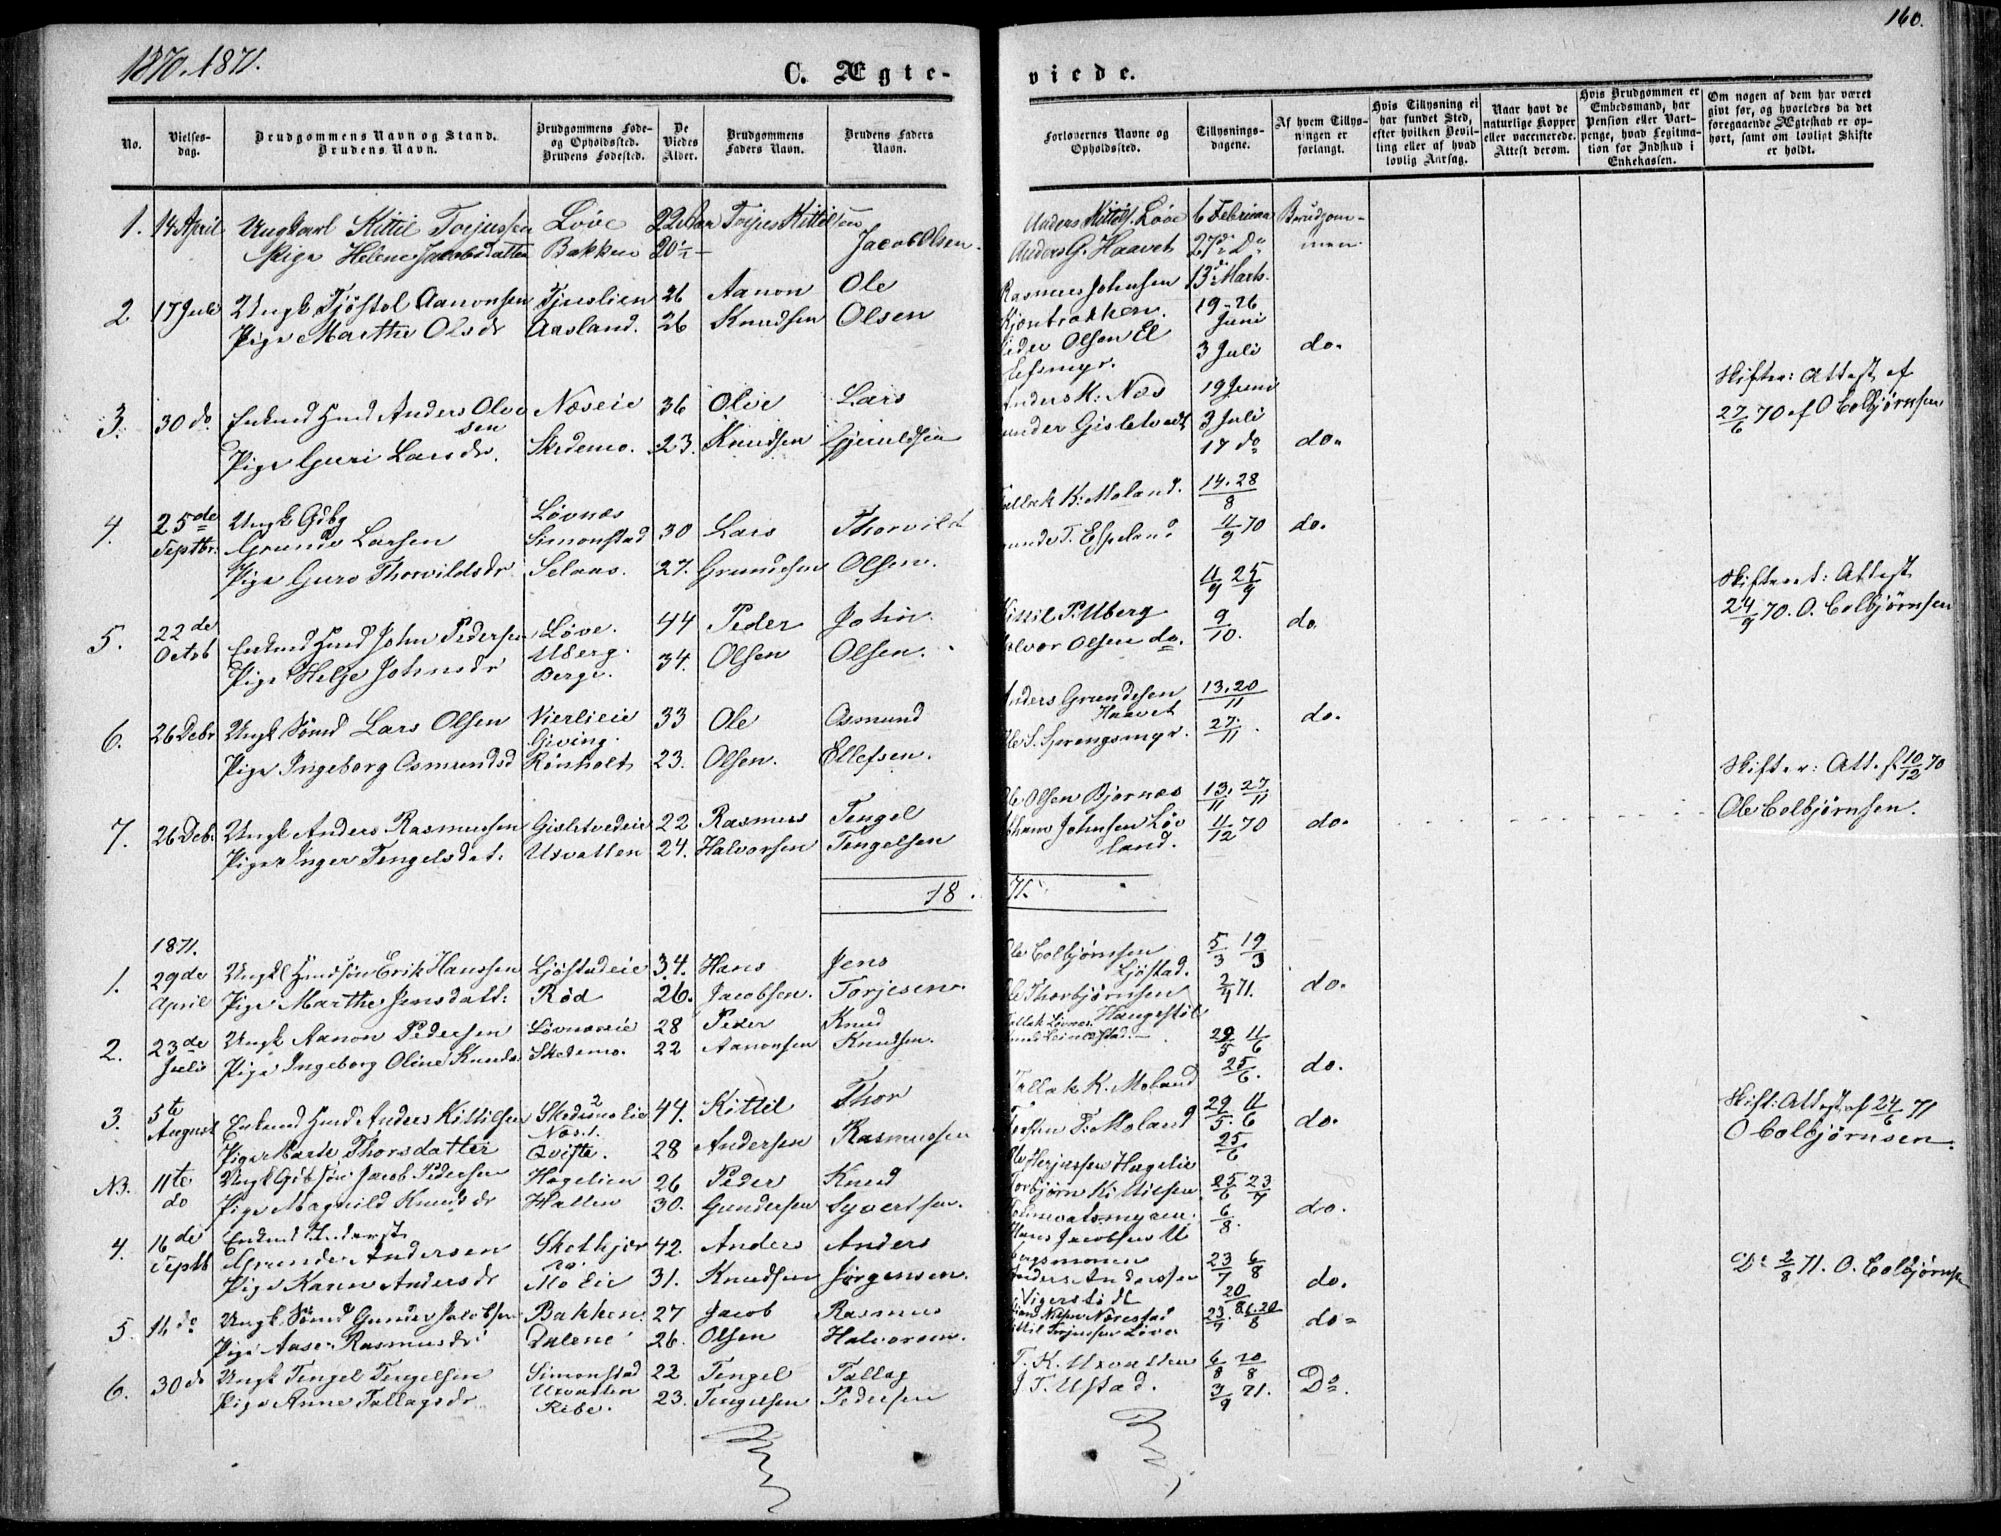 160.
1870. 1871.
C. Ægteviede.
No.
Vielses-
dag.
Brudgommens Navn og Stand.
Brudens Navn.
Brudgommens Føde-
og Opholdssted.
Brudens Fødested.
De
Viedes
Alder.
Brudgommens
Faders Navn.
Brudens Faders
Navn.
Forlovernes Navne og
Opholdssted.
Tillysnings-
dagene.
Af hvem Tillys-
ningen er
forlangt.
Hvis Tillysning ei
har fundet Sted,
efter hvilken Bevil-
ling eller af hvad
lovlig Aarsag.
Naar havt de
naturlige Kopper
eller vaccinerede.
Attest derom.
Hvis Brudgommen er
Embedsmand, har
Pension eller Vart-
penge, hvad Legitima-
tion for Indskud i
Enkekassen.
Om nogen af dem har været
gift før, og hvorledes da det
foregaaende Ægteskab er op-
hørt, samt om lovligt Skifte
er holdt.
1. 14 April Ungkarl Kittil Torjussen Løve 22 Torjus Kittilsen Anders Kittils. Løve 6 Februar Brudgom-
Pige Helene Jacobsdatter Bakken 20½ Jacob Olsen. Anders G. Haavet 27de Do men
2 17 Juli Ungk Tjøstol Aanonsen 26 Aanon Ole Rasmus Johnsen 13de Marts.
Pige Marthe Olsdr Aasland. 26 Knudsen Olsen 19-26 Juni
Peder Olsen 3 Juli do.
3. 30 do Enkemd Anders Olsen Næseie 36 Olie Lars Anders K: Næs 19 Juni Skifter: Attest af
Pige Guri Larsdr. Skedemo. 23. Knudsen Gjeruldsen Gunder Gisletvedt 3 Juli 27/6 70 af O Colbjørnsen
17 do do.
4. 25de Septbr. Ungk Gdbg Løvnæs Tallak K: Moland. 14. 28/8
Grunde Larsen Simonstad 30 Lars Thorvild T. Espeland 11/9 70 do.
Pige Guro Thorvildsdr. Selaas. 27. Grundesen Olsen. 11/9 25/9 Attest
5. 22de Octob Enkemd John Pedersen Løve. 44 Peder John Kittil P. Uberg 9/10. do. 24/9 70. O. Colbjørnsen
Pige Helje Johnsdr Uberg. Berge. 34. Olsen Olsen. Halvor Olsen do.
6. 26 Debr Ungk Sømd Lars Olsen Vierlieie 33 Ole Osmund Anders Grundesen 13. 20/11
Giving. Haavet 27/11. do.
Pige Ingeborg Osmundsd Rønholt 23. Olsen. Ellefsen. Ole S. Sprengsmyr. Skifter: Att. af 10/12 70
7. 26 Debr. Ungk Anders Rasmussen Gisletvedeie 22 Rasmus Tengel Ole Olsen Bjornæs 13/11. 27/11 Ole Colbjørnsen.
Pige Inger Tengelsdat. Uxvatten 24. Halvorsen Tengelsen Johnsen Løvland. 11/12 70 do.
18 71.
1871.
1. 29de April Ungkl Erik Hanssen Ljøstadeie 34. Hans Jens Ole Colbjørnsen Ljøstad. 5/3 19/3
Pige Marthe Jensdatt: Rød 26. Jacobsen. Torjesen. Ole Thorbjørnsen Haugestøl 2/4 71. do.
2. 23de Juli Ungk Aanon Pedersen Løvnæseie 28 Peder Knud Tallak Løvnæs 29/5 11/6
Pige Ingeborg Oline Knudsd. Skedemo. 22 Aanonsen Knudsen. 25/6. do.
Tallak K. Moland
3. 5te August Enkemd Anders Kittilsen Skedemo Eie 44. Kittel Thor Torsten T. Moland 29/5. 11/6 do. Skift: Attest af 24/6 71
Næs.
Pige Marte Thorsdatter Qvifte. 28 Andersen Rasmussen 25/6 O Colbjørnsen.
N3. 11te do Ungk Jacob Pedersen Hagelien 26 Peder Knud Ole Herjussen Hagelie
Pige Magnild Knudsdr Hatten 30. Gundersen Syvertsen. Torbjørn Kittilsen 25/6 23/7 do.
6/8.
4. 16de Septb Enkemd Hans Jacobsen
Grunde Andersen 42. Anders Anders 23/7 6/8
Pige Karen Andersdr Mo Eie 31. Knudsen Jørgensen. Anders Anderssen 20/8 do. Do 2/8 71. O. Colbjørnsen
5. 16 do Ungk Sømd Gunder Jacobsen Bakken 27 Jacob Rasmus Nilsen Nærestad 23/7. 6.20/8 do.
Pige Aase Rasmusdr Dalene 26. Olsen Halvorsen. Kittil Torjussen Løve
6. 30 do Ungk Tengel Tengelsen Simonstad 22 Tengel Tallag T. K. Uxvatten 6/8 20/8
Uxvatten
Pige Anne Tallagsdr Ribe. 23. Tengelsen Pedersen J T. Ustad. 3/9 71. Do.